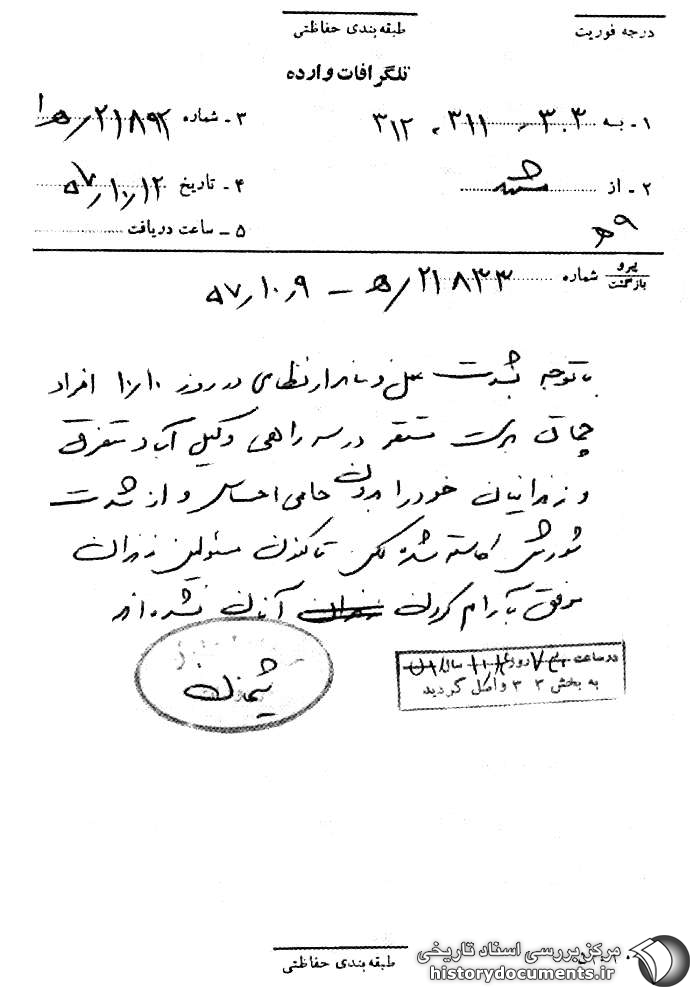 درجه فوریت
طبقه بندی حفاظتی
تلگرافات وارده
۱ - به ۳۰۳ - ۳۱۱ ، ۳۱۲
۳ - شماره ۲۱۸۹۲/ه‍ ۱
۲ - از مشهد
۴ - تاریخ ۵۷/۱۰/۱۲
۹ه‍
۵ - ساعت دریافت
پیرو
بازگشت شماره ۲۱۸۳۳/ه‍ - ۵۷/۱۰/۹
با توجه بشدت عمل و مانور نظامی در روز ۱۰/۱۰ افراد
چماق بدست مستقر در سه راهی وکیل آباد متفرق
و زندانیان خود را بدون حامی احساس و از شدت
شورش کاسته شده لکن تاکنون مسئولین زندان
موفق به آرام کردن آنان نشده اند
شیخان
در ساعت روز سال
به بخش ۳۳ واصل گردید
طبقه بندی حفاظتی
مرکز بررسی اسناد تاریخی
historydocuments.ir